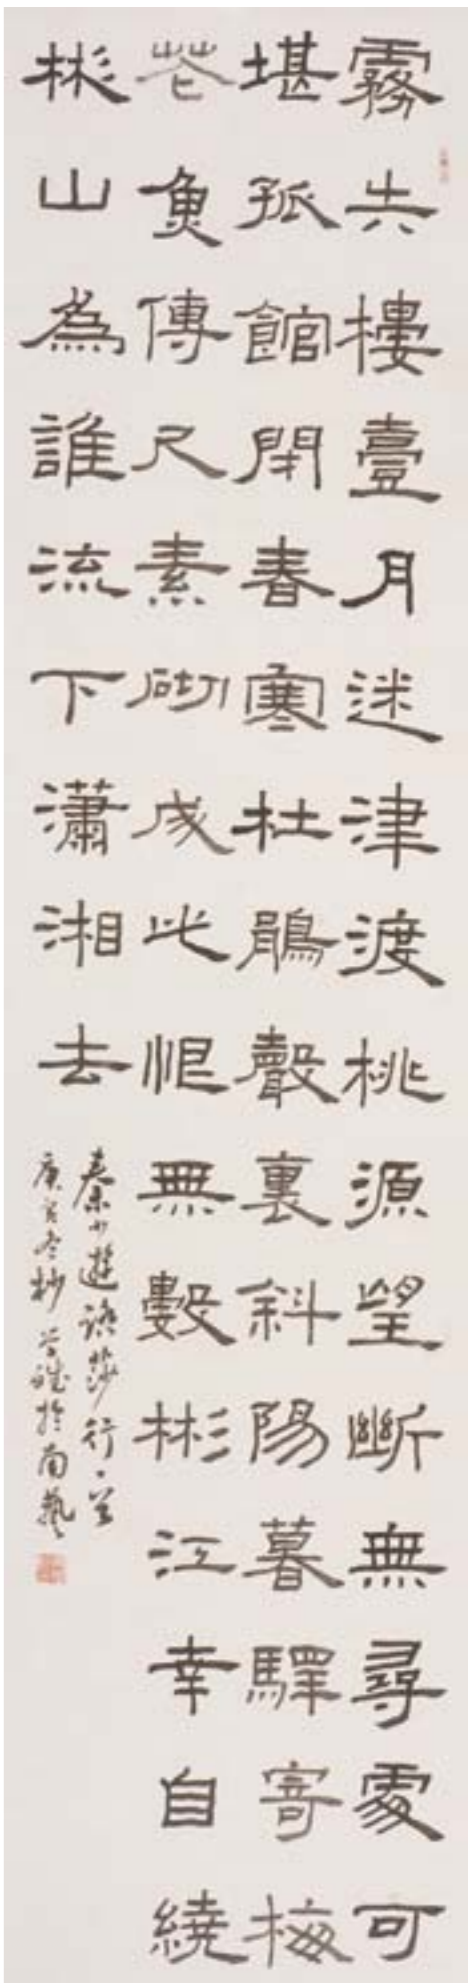 霧失樓臺月迷津渡桃源望斷無尋處可
堪孤館閉春寒杜鵑聲裏斜陽暮驛寄梅
花魚傳尺素砌成此恨無數彬江幸自繞
彬山為誰流下瀟湘去
秦少遊踏莎行一首
庚寅冬杪於南藝